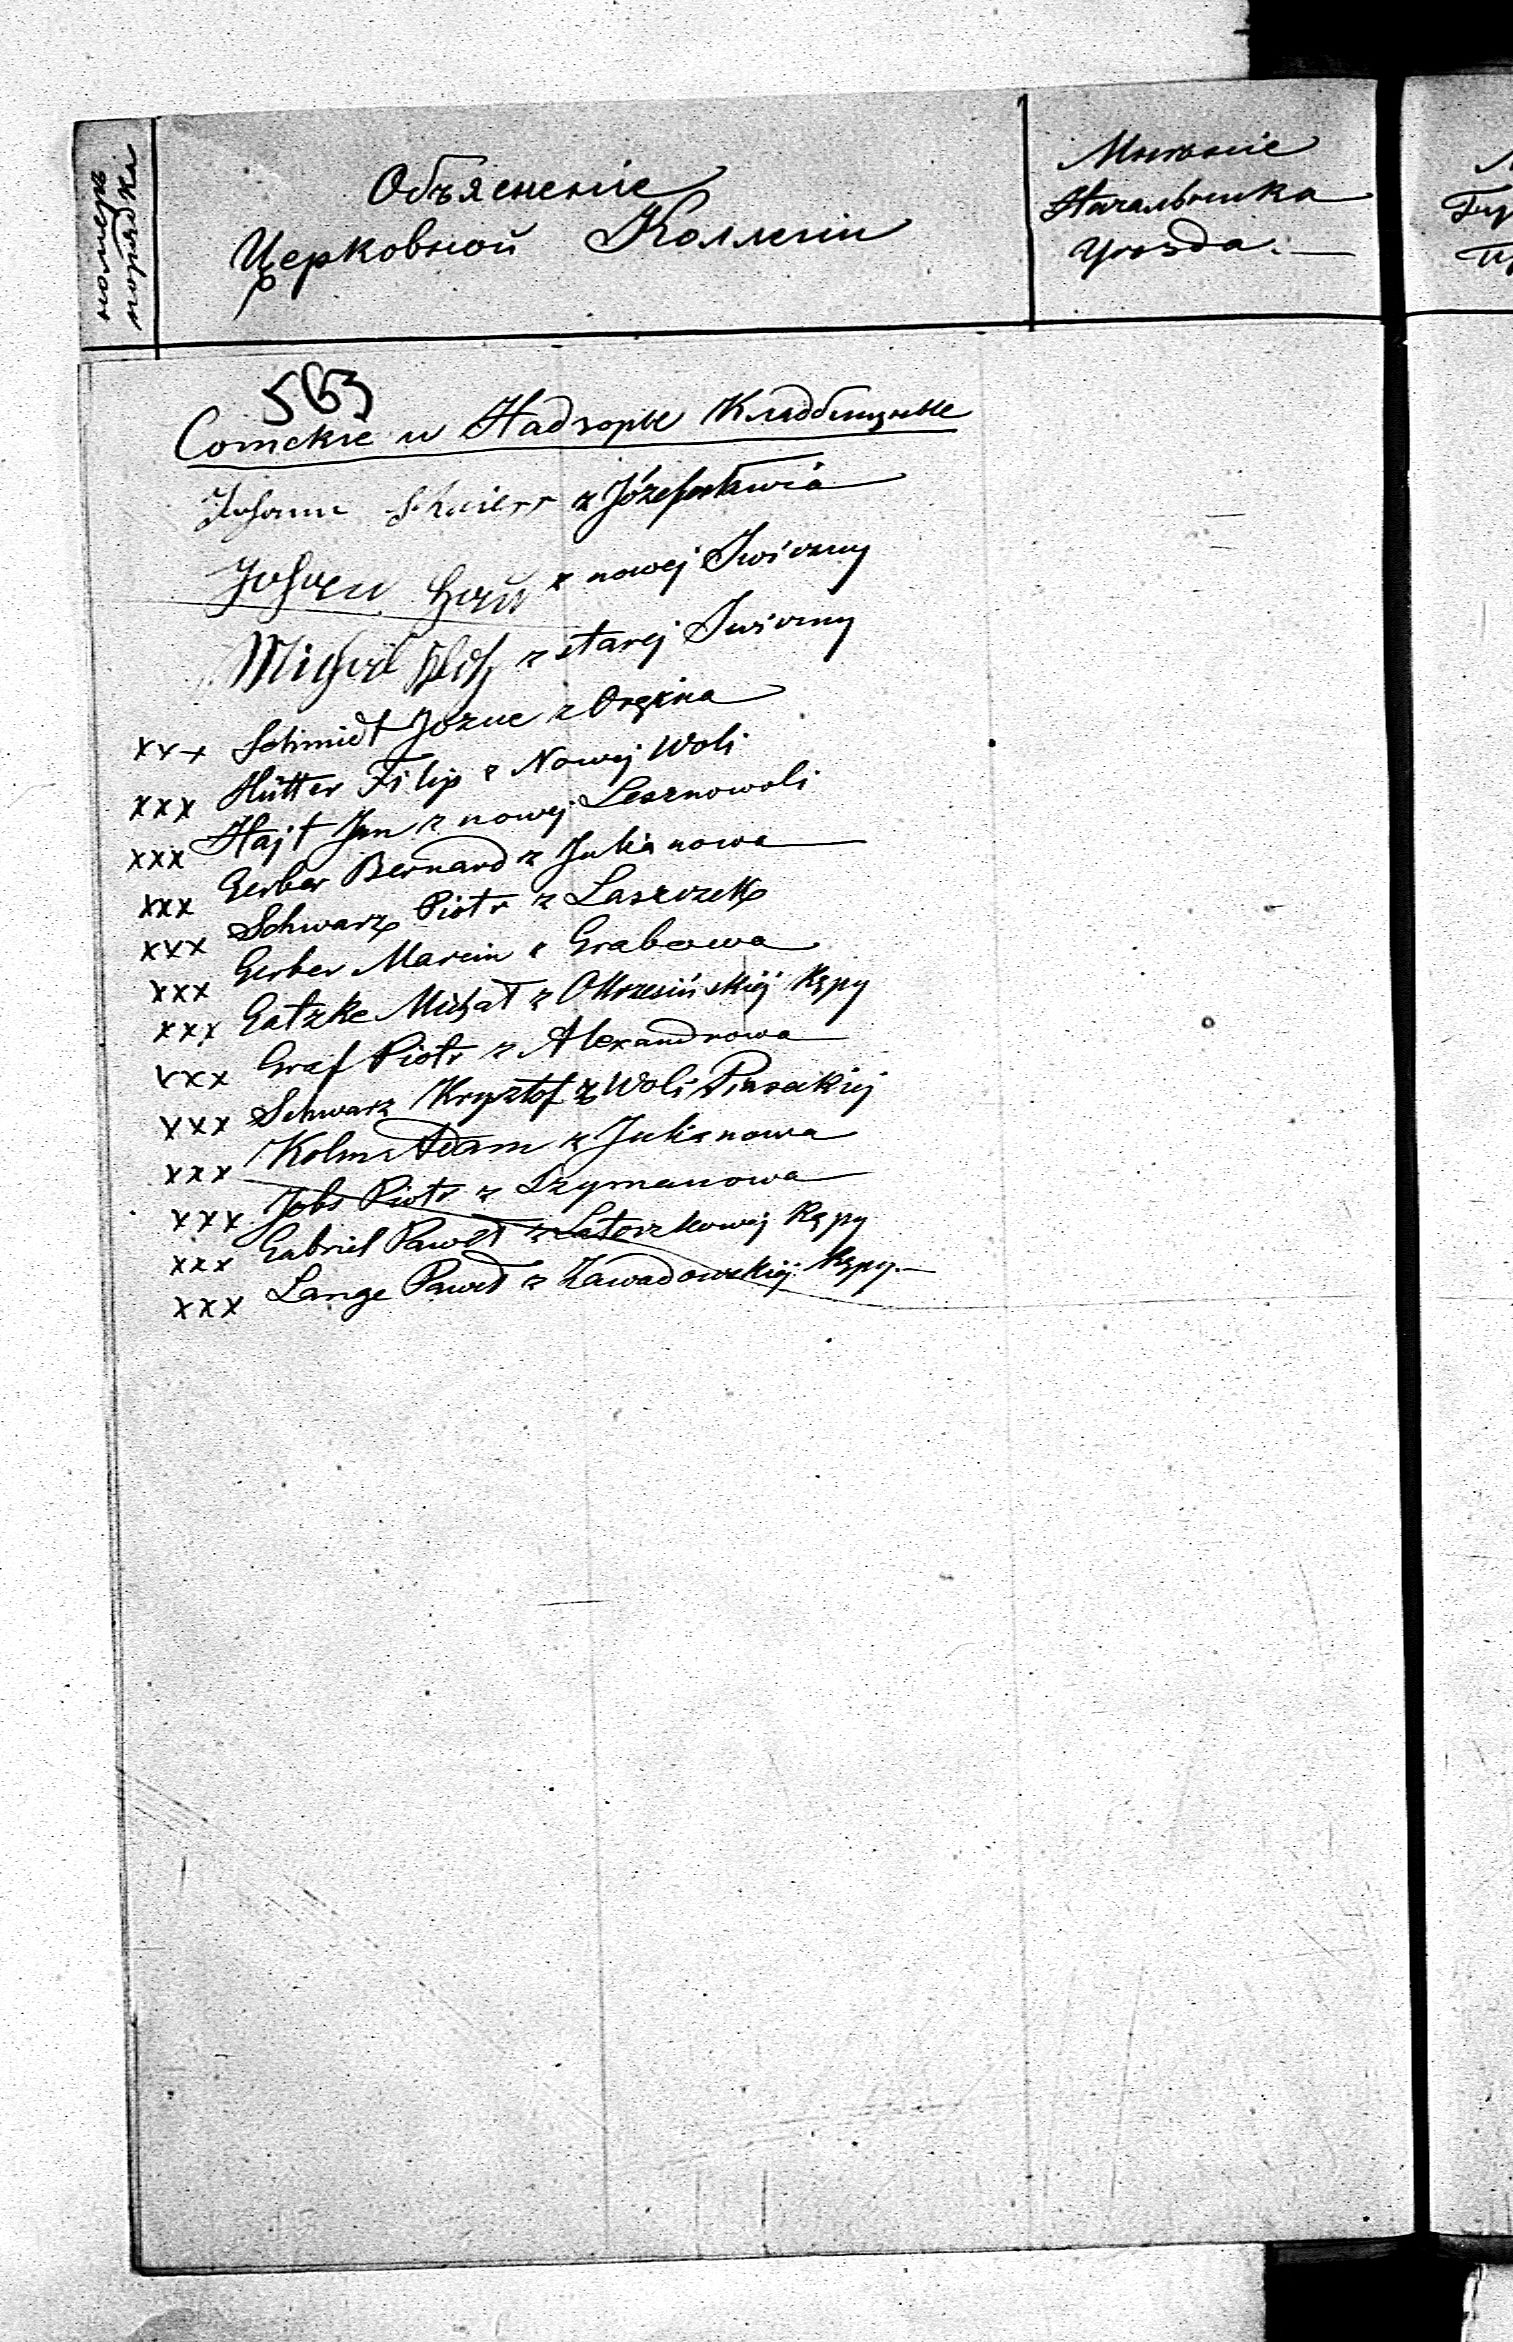 номеръ
порядка
Объясненіе
Церковной Коллегіи
Мнѣніе
Начальника
Уѣзда.—
563
Сотскіе и Надзорцы Кладбищные
Johann z Józefosławia
Johan z nowej Iwiczny
Michael z starej Iwiczny
xxx Schmidt Jozue z Oręzna
xxx Hütter Filip z Nowej Woli
xxx Hajt Jan z nowej Lesznowoli
xxx Gerber Bernard z Julianowa
xxx Schwarz Piotr z Laszczek
xxx Gerber Marcin z Grabowa
xxx Gatzke Michał z Okrzesińskiéj Kępy
xxx Graf Piotr z Alexandrowa
xxx Schwarz Krysztof z Woli Prasckiej
xxx Kolm Adam z Julianowa
xxx Jobs Piotr z Szymanowa
xxx Gabriel Paweł z Latoszkowej Kępy
xxx Lange Paweł z Zawadowskiéj Kępy.—